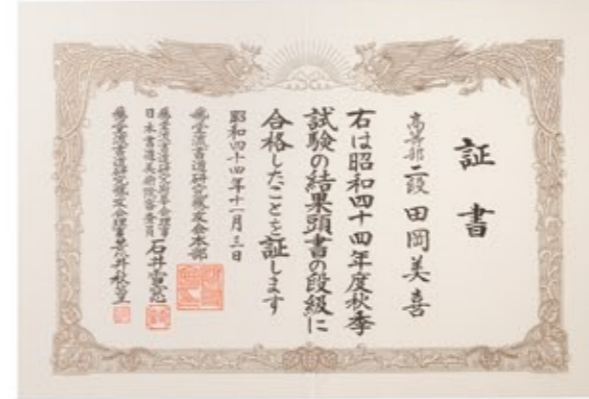 証書
高等部二段 田岡美喜
右は昭和四十四年度秋季
試験の結果頭書の段級に
合格したことを証します
昭和四十四年十一月三日
書道研究
日本書道美術院審査員 石井